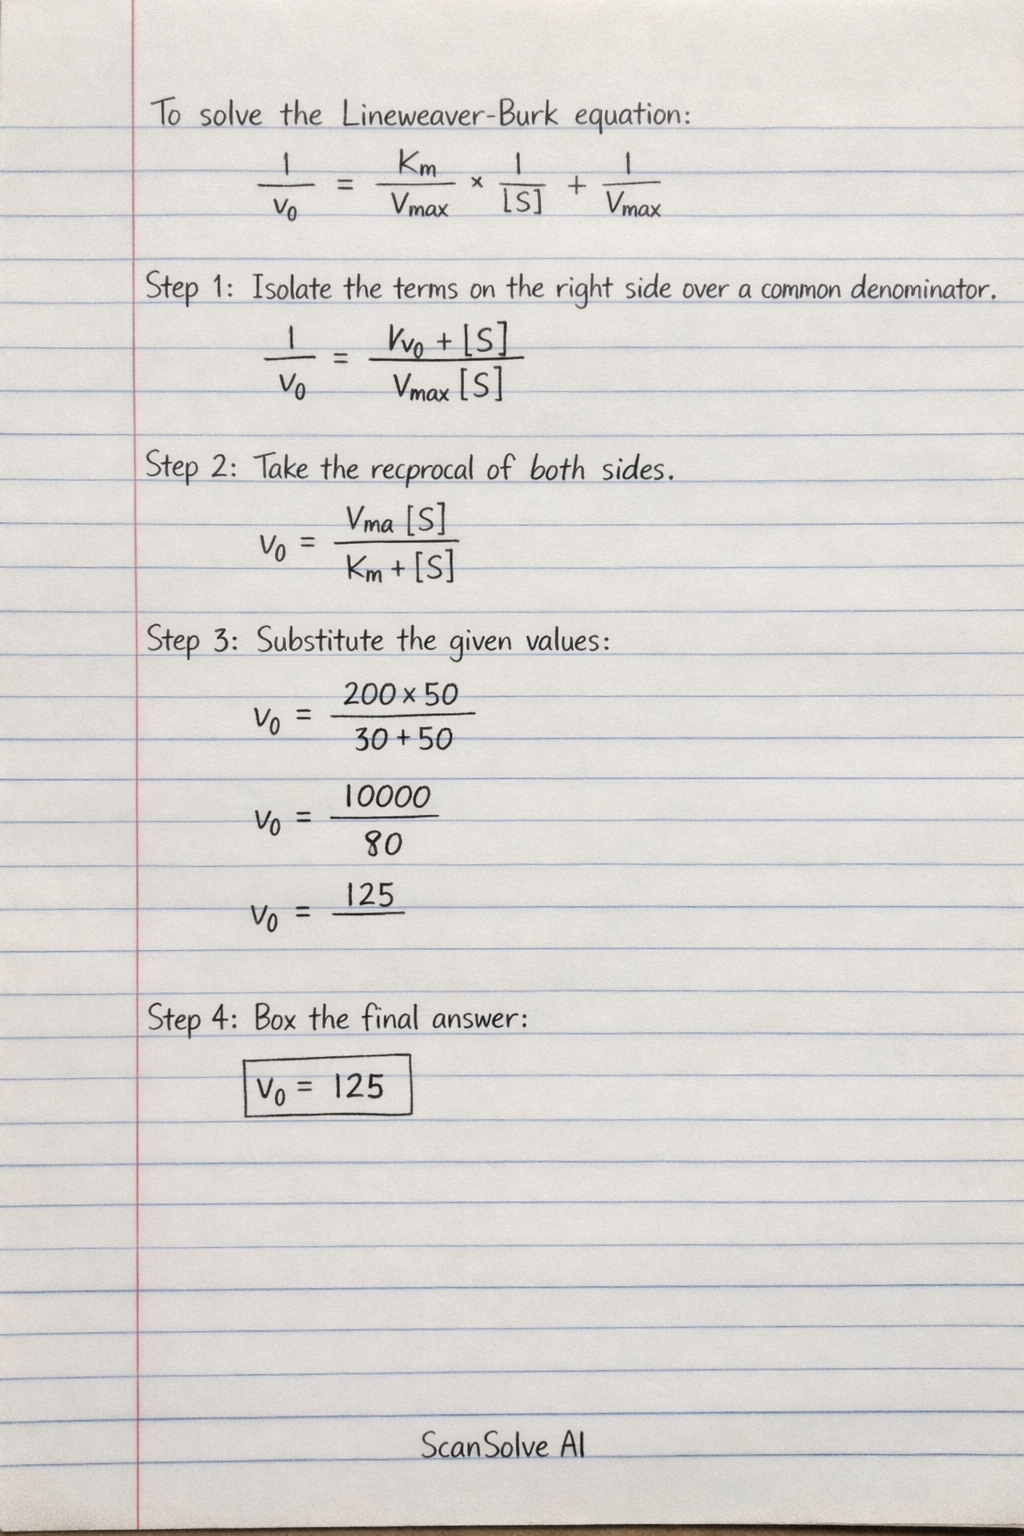 To solve the Lineweaver-Burk equation:
1/v₀ = Kₘ/Vmax × 1/[S] + 1/Vmax
Step 1: Isolate the terms on the right side over a common denominator.
1/v₀ = Vv₀ + [S] / Vmax [S]
Step 2: Take the recprocal of both sides.
v₀ = Vma [S] / Kₘ + [S]
Step 3: Substitute the given values:
v₀ = 200 × 50 / 30 + 50
v₀ = 10000 / 80
v₀ = 125
Step 4: Box the final answer:
v₀ = 125
ScanSolve AI